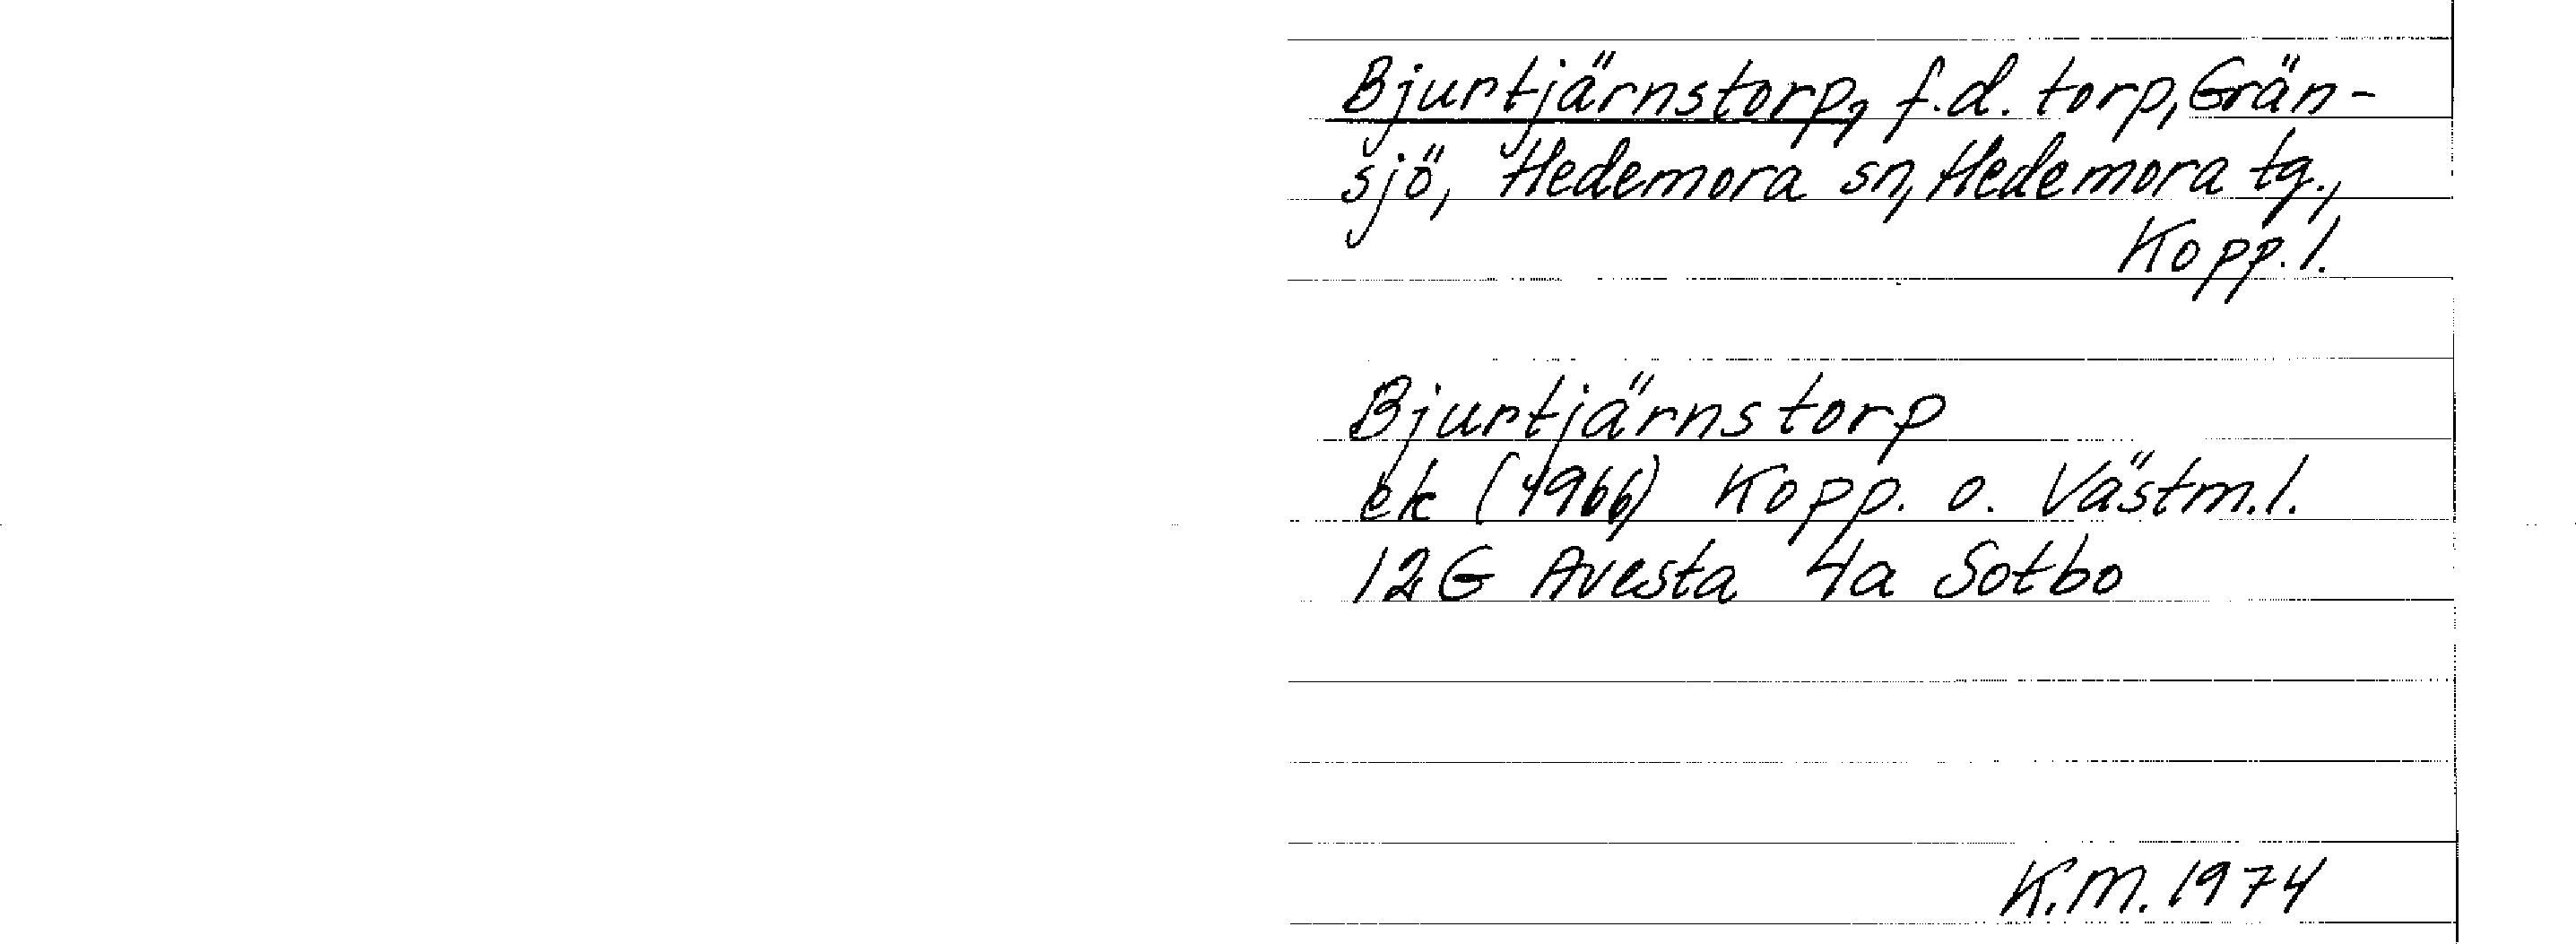 Bjurtjärnstorp, f.d. torp, Grän-
sjö, Hedemora sn, Hedemora tg.,
Kopp. l.
Bjurtjärnstorp
ek (1966) Kopp. o. Västm. l.
12G Avesta 4a Sotbo
K.M. 1974